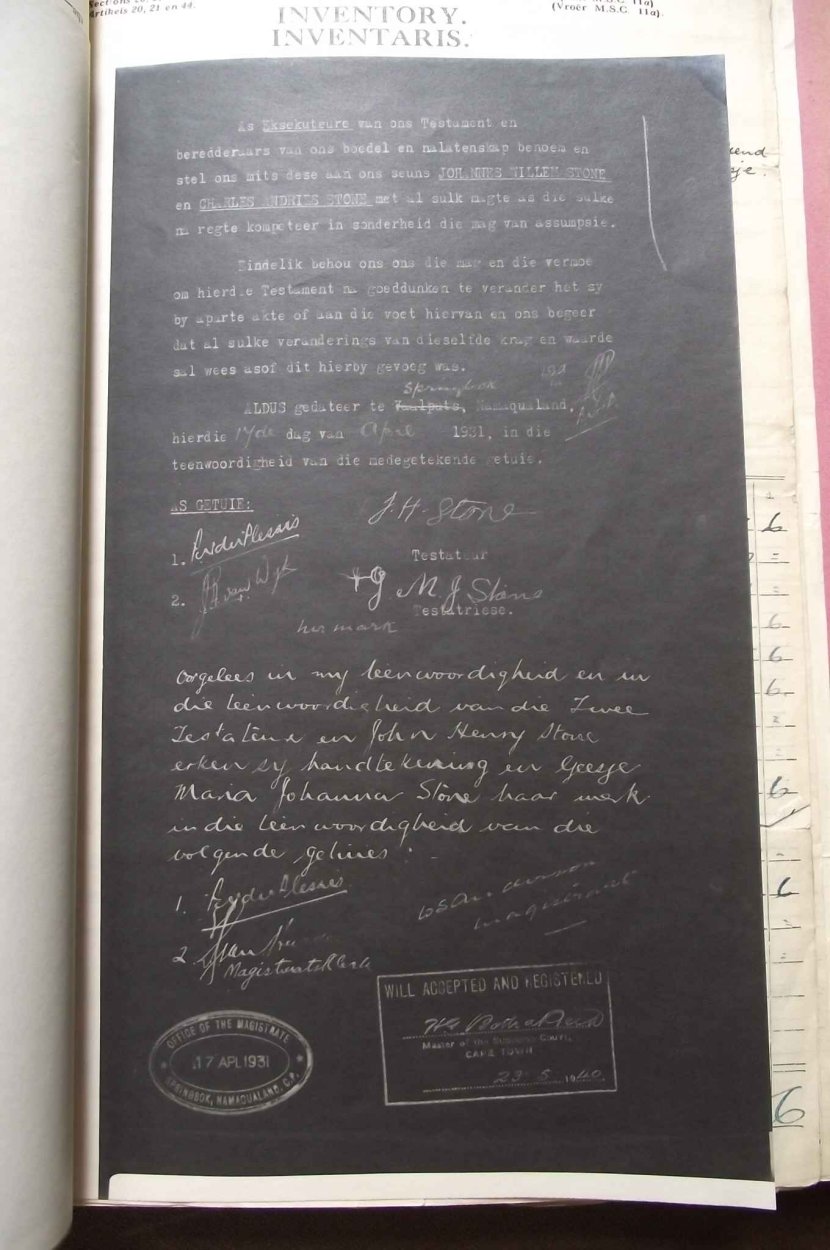 Artikels 20, 21 en 44.
INVENTORY.
INVENTARIS.
(Vroër M.S.C. 11a).
As Eksekuteure van ons Testament en
beredderaars van ons boedel en nalatenskap benoem en
stel ons mits dese aan ons seuns JOHANNES WILLEM STONE
en CHARLES ANDRIES STONE met al sulk magte as die sulke
na regte kompeteer in sonderheid die mag van assumpsie.
Eindelik behou ons ons die mag en die vermoe
om hierdie Testament na goeddunken te verander het sy
by aparte akte of aan die voet hiervan en ons begeer
dat al sulke veranderings van dieselfde krag en waarde
sal wees asof dit hierby gevoeg was.
Springbok
ALDUS gedateer te Vaalpats, Namaqualand,
hierdie 17de dag van April 1931, in die
teenwoordigheid van die medegetekende getuie.
AS GETUIE:
J. H. Stone
1.
Testateur
2.
G M. J Stone
Testatriese.
her mark
Oorgelees in my teenwoordigheid en in
die teenwoordigheid van die Twee
Testateurs en John Henry Stone
erken sy handtekening en Geesje
Maria Johanna Stone haar merk
in die teenwoordigheid van die
volgende getuies :-
1.
2.
Magistrate's Clerk
magistrate
WILL ACCEPTED AND REGISTERED
Master of the Supreme Court,
CAPE TOWN
23-5-1940.
OFFICE OF THE MAGISTRATE
17 APL 1931
SPRINGBOK, NAMAQUALAND. C.P.